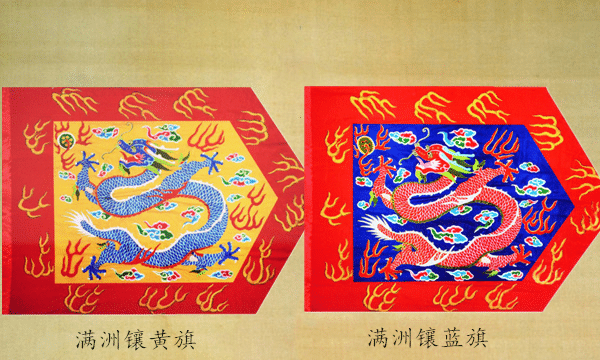 满洲镶黄旗
满洲镶蓝旗